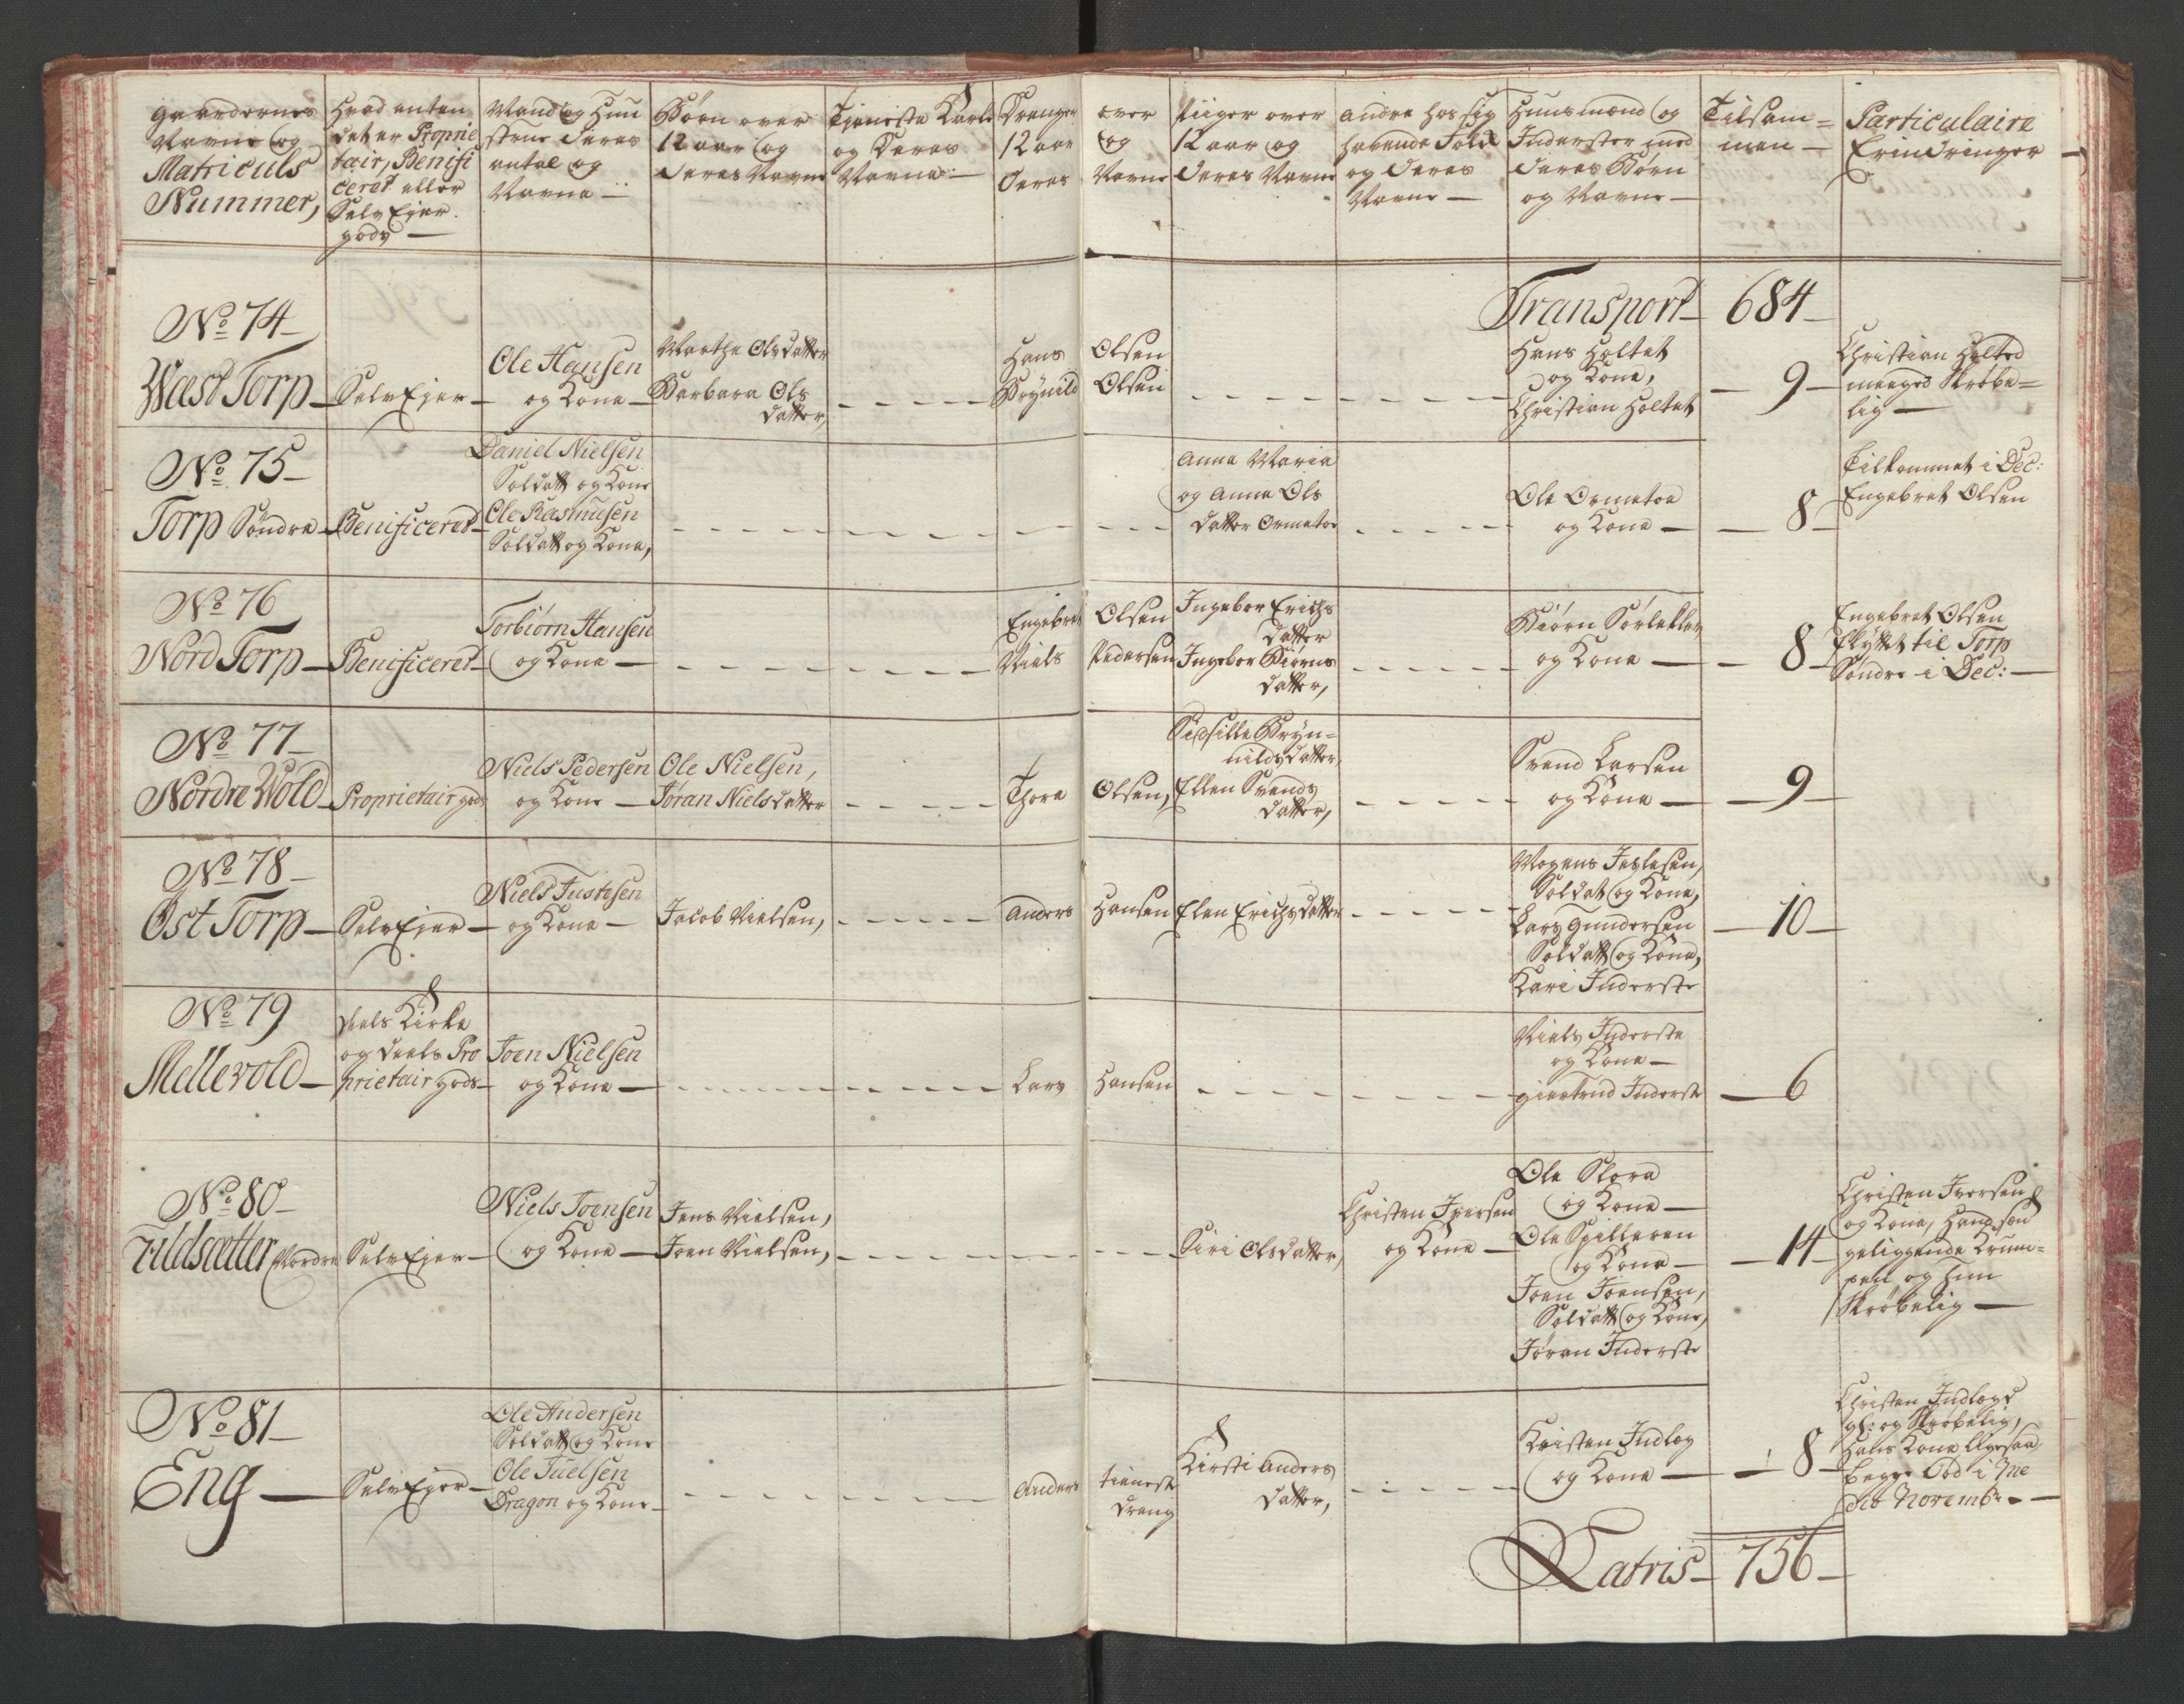 Gaardernes
Navne og
Matriculs
Nummer,
Hvad enten
det er Proprie
tair, Benifi
ceret eller
Selv Ejer
gods —
Mand og Hu
strue deres
antal og
Navne —
Børn over
12 aar og
deres Navne
Tjeneste Karle
og Deres
Navne —
Drenger over
12 aar og
Deres Navne
Piiger over
12 aar og
deres Navne
andre hos sig
havende Folk
og deres
Navne —
Huusmænd og
Inderster med
deres Børn
og Navne —
Tilsam=
men —
Particulaire
Erindringer —
Transport — 684 —
No 74 —
Wæst Torp —
Selv Ejer —
Ole Hansen
og Kone —
Marthe Olsdatter
Barbara Ols
datter,
Hans Olsen
Brynild Olsen
Hans Holtet
og Kone,
Christian Holtet
— 9 —
Christian Holted
meeged Skrøbe=
lig —
No 75 —
Torp Søndre —
Benificeret —
Daniel Nielsen
Soldatt og Kone
Ole Rasmusen
Soldatt og Kone,
Anna Maria
og Anna Ols
datter Ormetoe
Ole Ormetoe
og Kone —
— 8 —
Tilkommet i Dec:
Engebret Olsen
No 76
Nord Torp —
Benificeret —
Torbiørn Hansen
og Kone —
Engebret Olsen
Niels Pedersen
Ingebor Erichs
datter
Ingebor Biørns
datter,
Biørn Sørlekles
og Kone —
— 8 —
Engebret Olsen
flyttet til Torp
Søndre i Dec: —
No 77 —
Nordre Wold —
Proprietair gods
Niels Pedersen
og Kone —
Ole Nielsen,
Jøran Nielsdatter
Thore Olsen,
Sidsille Bryn=
nildsdatter,
Ellen Svends
datter,
Svend Larsen
og Kone —
— 9 —
No 78 —
Øst Torp —
Selv Ejer —
Niels Justesen
og Kone —
Jacob Nielsen,
Anders Hansen
Elen Erichsdatter
Mogens Jeslesen,
Soldat og Kone,
Lars Gundersen
Soldatt og Kone,
Kari Inderste
— 10 —
No 79
Mellevold —
deels Kirke
og deels Pro
prietair gods —
Joen Nielsen
og Kone —
Lars Hansen
Niels Inderste
og Kone —
giertrud Inderste
— 6
No 80 —
Fuldsætter Nordre
Selv Ejer —
Niels Joensen
og Kone —
Jens Nielsen,
Joen Nielsen,
Siri Olsdatter,
Christen Iversen
og Kone —
Ole Stora
og Kone —
Ole Spilleren
og Kone —
Joen Joensen,
Soldatt og Kone,
Jøran Inderste
— 14 —
Christen Iversen
og Kone, Hand son
geliggende Krum=
pen og hun
Skrøbelig —
No 81 —
Eng —
Selv Ejer —
Ole Andersen
Soldatt og Kone
Ole Juelsen
Dragon og Kone —
Anders tieneste
dreng
Kirsti Anders
datter,
Kristen Indlog
og Kone —
— 8 —
Christen Indlogd
gl: og Skrøbelig,
Hans Kone ligesaa
begge Død i Me
dio Novembr. —
Latris — 756 —